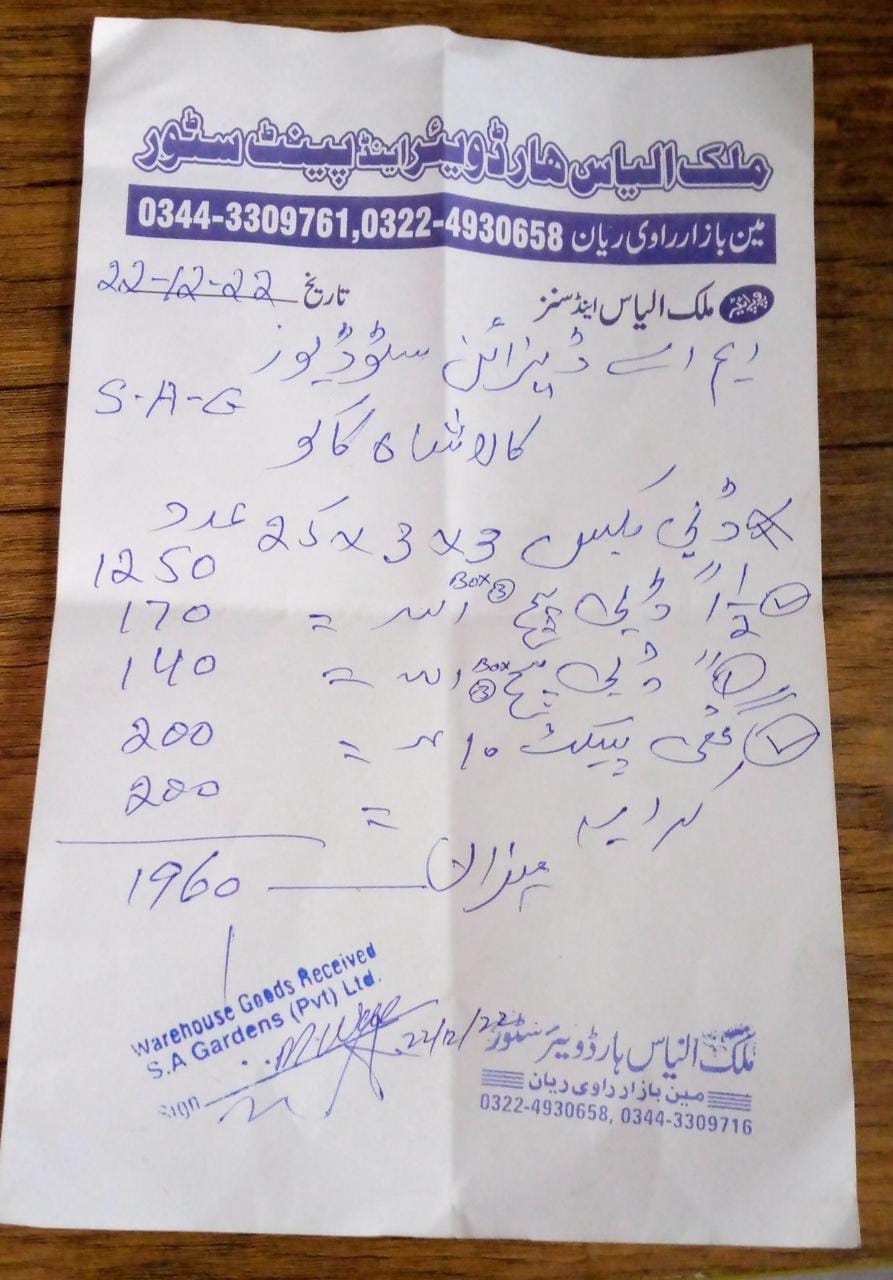 ملک الیاس ھارڈویئر اینڈ پینٹ سٹور
مین بازار راوی ریان 0344-3309761,0322-4930658
ملک الیاس اینڈ سنز
تاریخ 22-12-22
ایم اے ڈیزائن سٹوڈیوز
S-A-G
کالا شاہ کاکو
بکس 3 x 3 x 25 عدد
1250
1 1/2" پیچ Box 3 = 170
1" پیچ Box 3 = 140
پیکٹ 10 = 200
کرایہ = 200
میزان 1960
Warehouse Goods Received
S.A Gardens (Pvt) Ltd.
Sign
22/12/22
ملک الیاس ہارڈویئر سٹور
مین بازار راوی ریان
0322-4930658, 0344-3309716